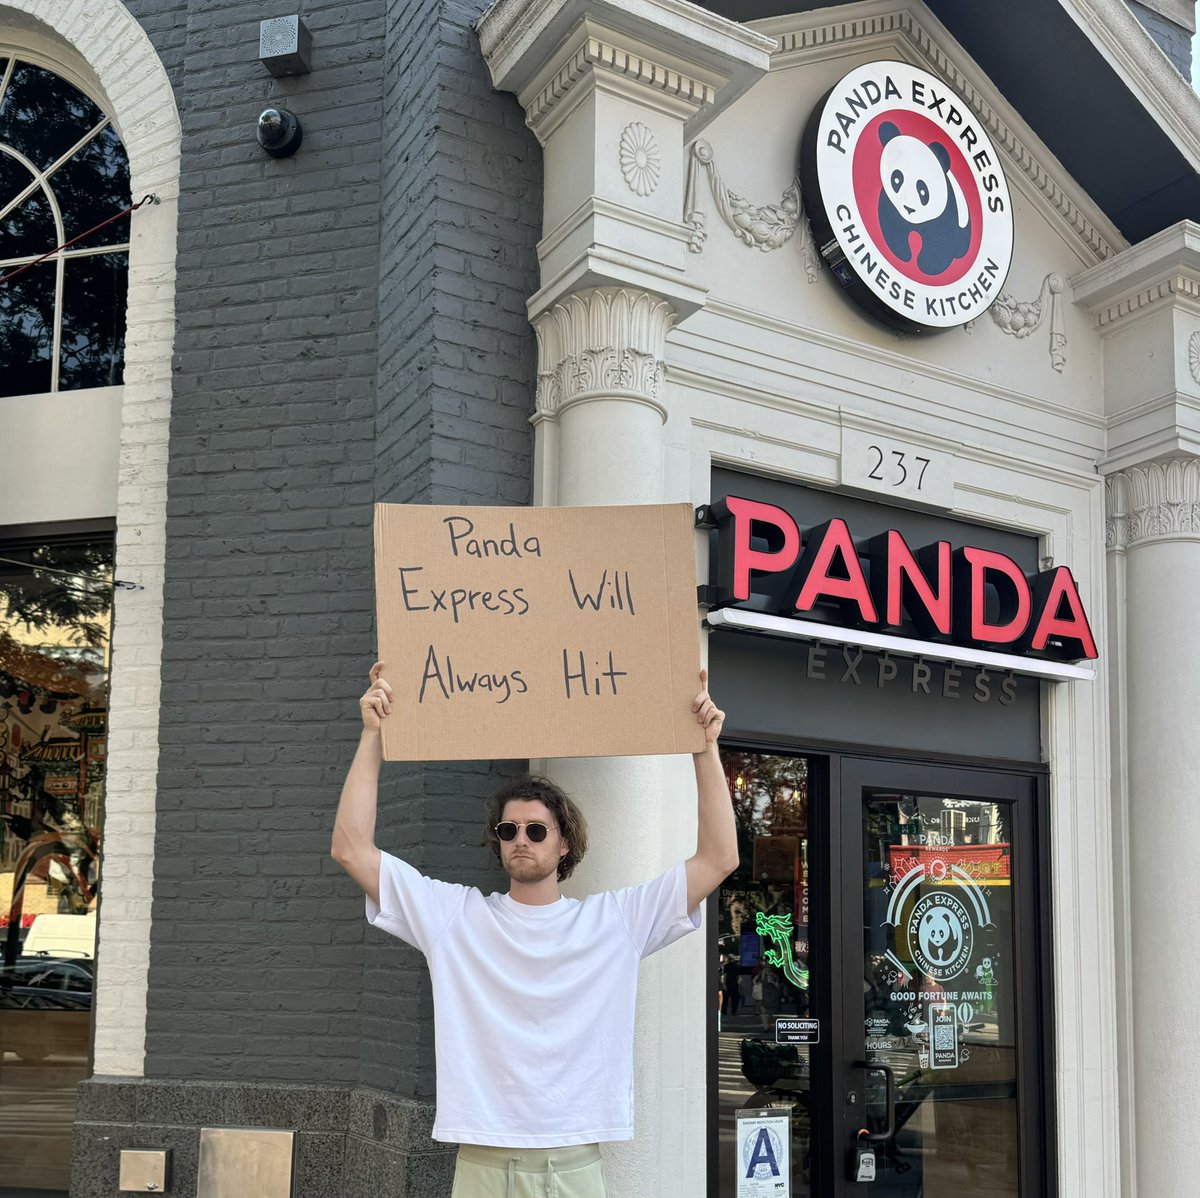 PANDA EXPRESS
CHINESE KITCHEN
237
PANDA
EXPRESS
Panda
Express Will
Always Hit
PANDA
REWARDS
PANDA EXPRESS
CHINESE KITCHEN
GOOD FORTUNE AWAITS
JOIN
PANDA
REWARDS
HOURS
NO SOLICITING
THANK YOU
SANITARY INSPECTION GRADE
A
NYC